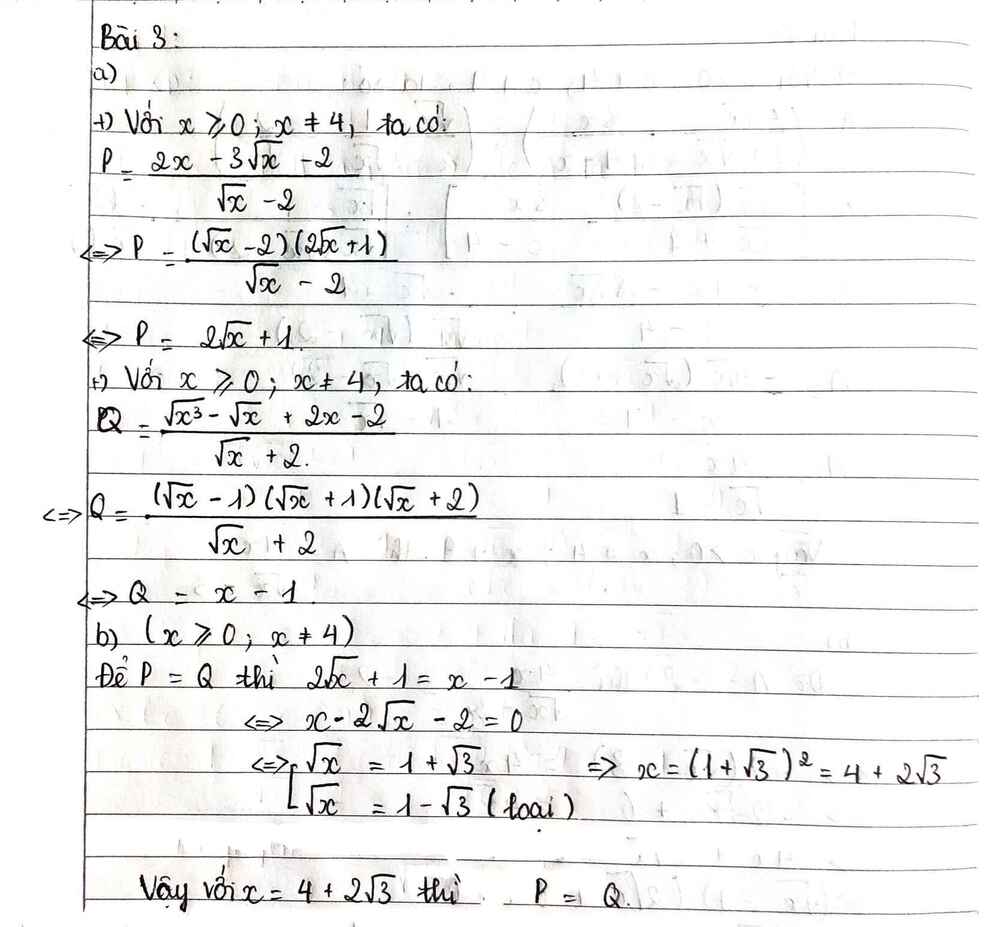 Bài 3:
a)
+) Với x ⩾ 0; x ≠ 4, ta có:
P = (2x - 3√x - 2)/(√x - 2)
<=> P = ((√x - 2)(2√x + 1))/(√x - 2)
<=> P = 2√x + 1.
+) Với x ⩾ 0; x ≠ 4, ta có:
Q = (√x³ - √x + 2x - 2)/(√x + 2.)
<=> Q = ((√x - 1)(√x + 1)(√x + 2))/(√x + 2)
<=> Q = x - 1.
b) (x ⩾ 0; x ≠ 4)
Để P = Q thì 2√x + 1 = x - 1
<=> x - 2√x - 2 = 0
<=> [ √x = 1 + √3 => x = (1 + √3)² = 4 + 2√3
√x = 1 - √3 (loại)
Vậy với x = 4 + 2√3 thì P = Q.